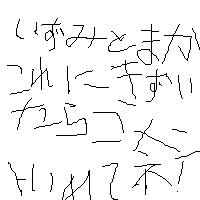 いずみとまか
これにきずい
たらコメン
トいれて不!